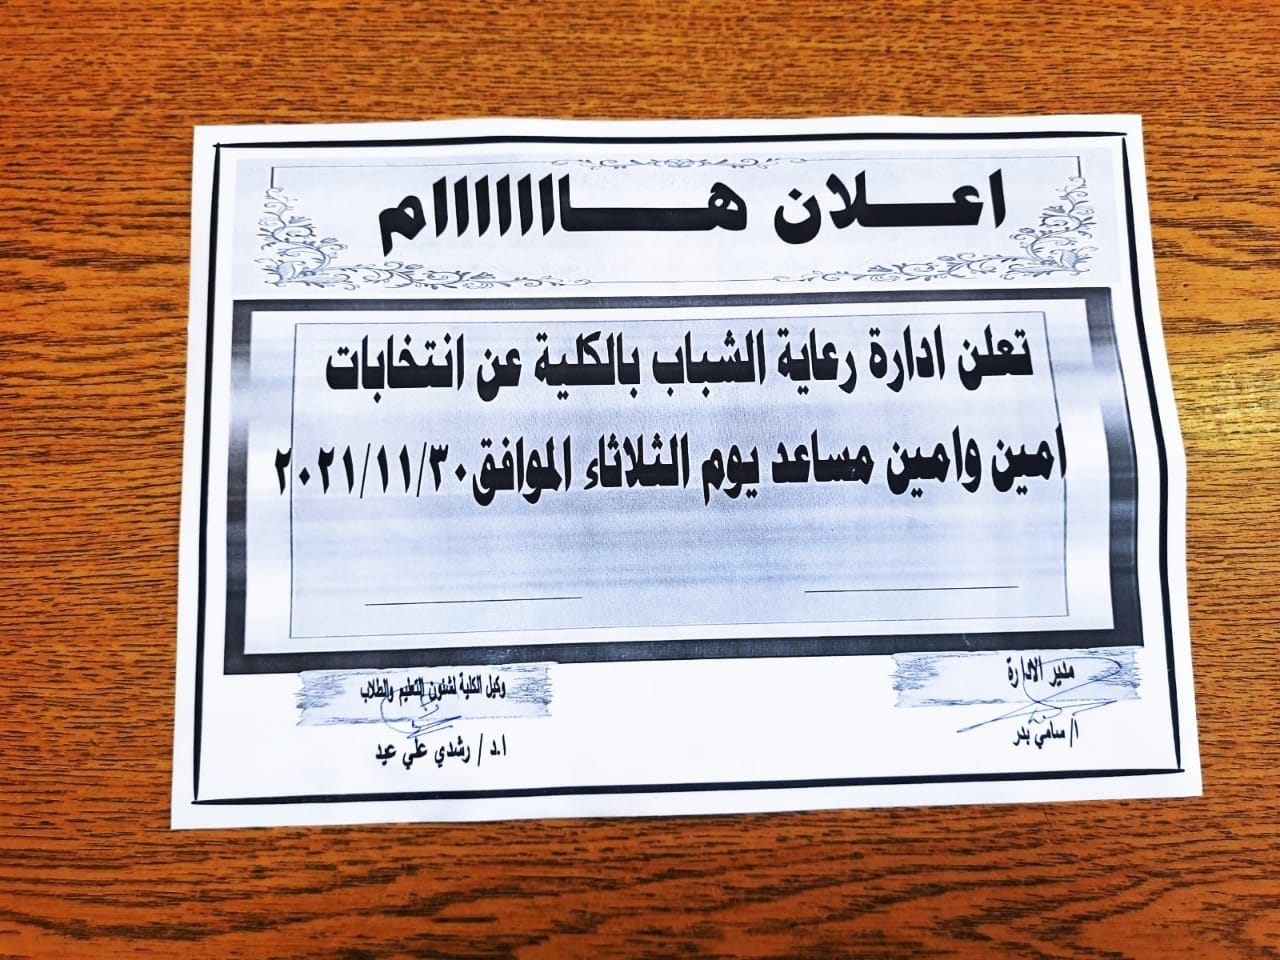 اعـــلان هـــــاااااااام
تعلن ادارة رعاية الشباب بالكلية عن انتخابات
امين وامين مساعد يوم الثلاثاء الموافق٢٠٢١/١١/٣٠
مدير الادارة
أ/ سامي بدر
وكيل الكلية لشئون التعليم والطلاب
ا.د / رشدي علي عيد